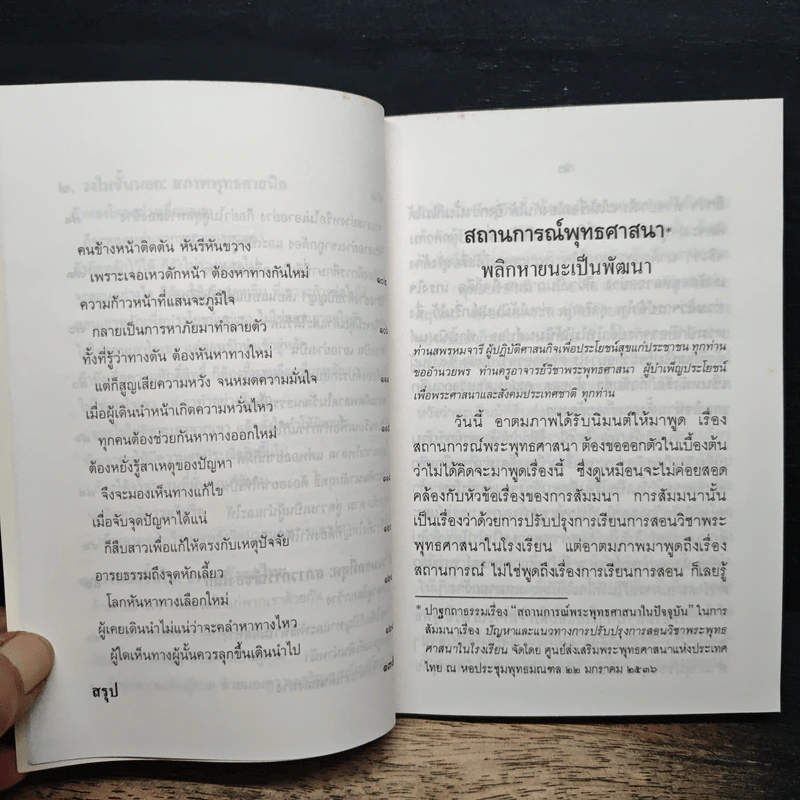 คนข้างหน้าติดตัน หันรีหันขวาง
เพราะเจอเหวดักหน้า ต้องหาทางกันใหม่ ๑๐๒
ความก้าวหน้าที่แสนจะภูมิใจ
กลายเป็นการหาภัยมาทำลายตัว
ทั้งที่รู้ว่าทางตัน ต้องหันหาทางใหม่
แต่ก็สูญเสียความหวัง จนหมดความมั่นใจ
เมื่อผู้เดินนำหน้าเกิดความหวั่นไหว
ทุกคนต้องช่วยกันหาทางออกใหม่
ต้องหยั่งรู้สาเหตุของปัญหา
จึงจะมองเห็นทางแก้ไข
เมื่อจับจุดปัญหาได้แน่
ก็สืบสาวเพื่อแก้ให้ตรงกับเหตุปัจจัย
อารยธรรมถึงจุดหักเลี้ยว
โลกหันหาทางเลือกใหม่
ผู้เคยเดินนำไม่แน่ว่าจะคลำหาทางไหว
ผู้ใดเห็นทางผู้นั้นควรลุกขึ้นเดินนำไป
สรุป
สถานการณ์พุทธศาสนา*
พลิกหายนะเป็นพัฒนา
ท่านสพรหมจารี ผู้ปฏิบัติศาสนกิจเพื่อประโยชน์สุขแก่ประชาชน ทุกท่าน
ขออำนวยพร ท่านครูอาจารย์วิชาพระพุทธศาสนา ผู้บำเพ็ญประโยชน์
เพื่อพระศาสนาและสังคมประเทศชาติ ทุกท่าน
วันนี้ อาตมภาพได้รับนิมนต์ให้มาพูด เรื่อง
สถานการณ์พระพุทธศาสนา ต้องขอออกตัวในเบื้องต้น
ว่าไม่ได้คิดจะมาพูดเรื่องนี้ ซึ่งดูเหมือนจะไม่ค่อยสอด
คล้องกับหัวข้อเรื่องของการสัมมนา การสัมมนานั้น
เป็นเรื่องว่าด้วยการปรับปรุงการเรียนการสอนวิชาพระ
พุทธศาสนาในโรงเรียน แต่อาตมภาพมาพูดถึงเรื่อง
สถานการณ์ ไม่ใช่พูดถึงเรื่องการเรียนการสอน ก็เลยรู้
* ปาฐกถาธรรมเรื่อง “สถานการณ์พระพุทธศาสนาในปัจจุบัน” ในการ
สัมมนาเรื่อง ปัญหาและแนวทางการปรับปรุงการสอนวิชาพระพุทธ
ศาสนาในโรงเรียน จัดโดย ศูนย์ส่งเสริมพระพุทธศาสนาแห่งประเทศ
ไทย ณ หอประชุมพุทธมณฑล ๒๒ มกราคม ๒๕๓๖